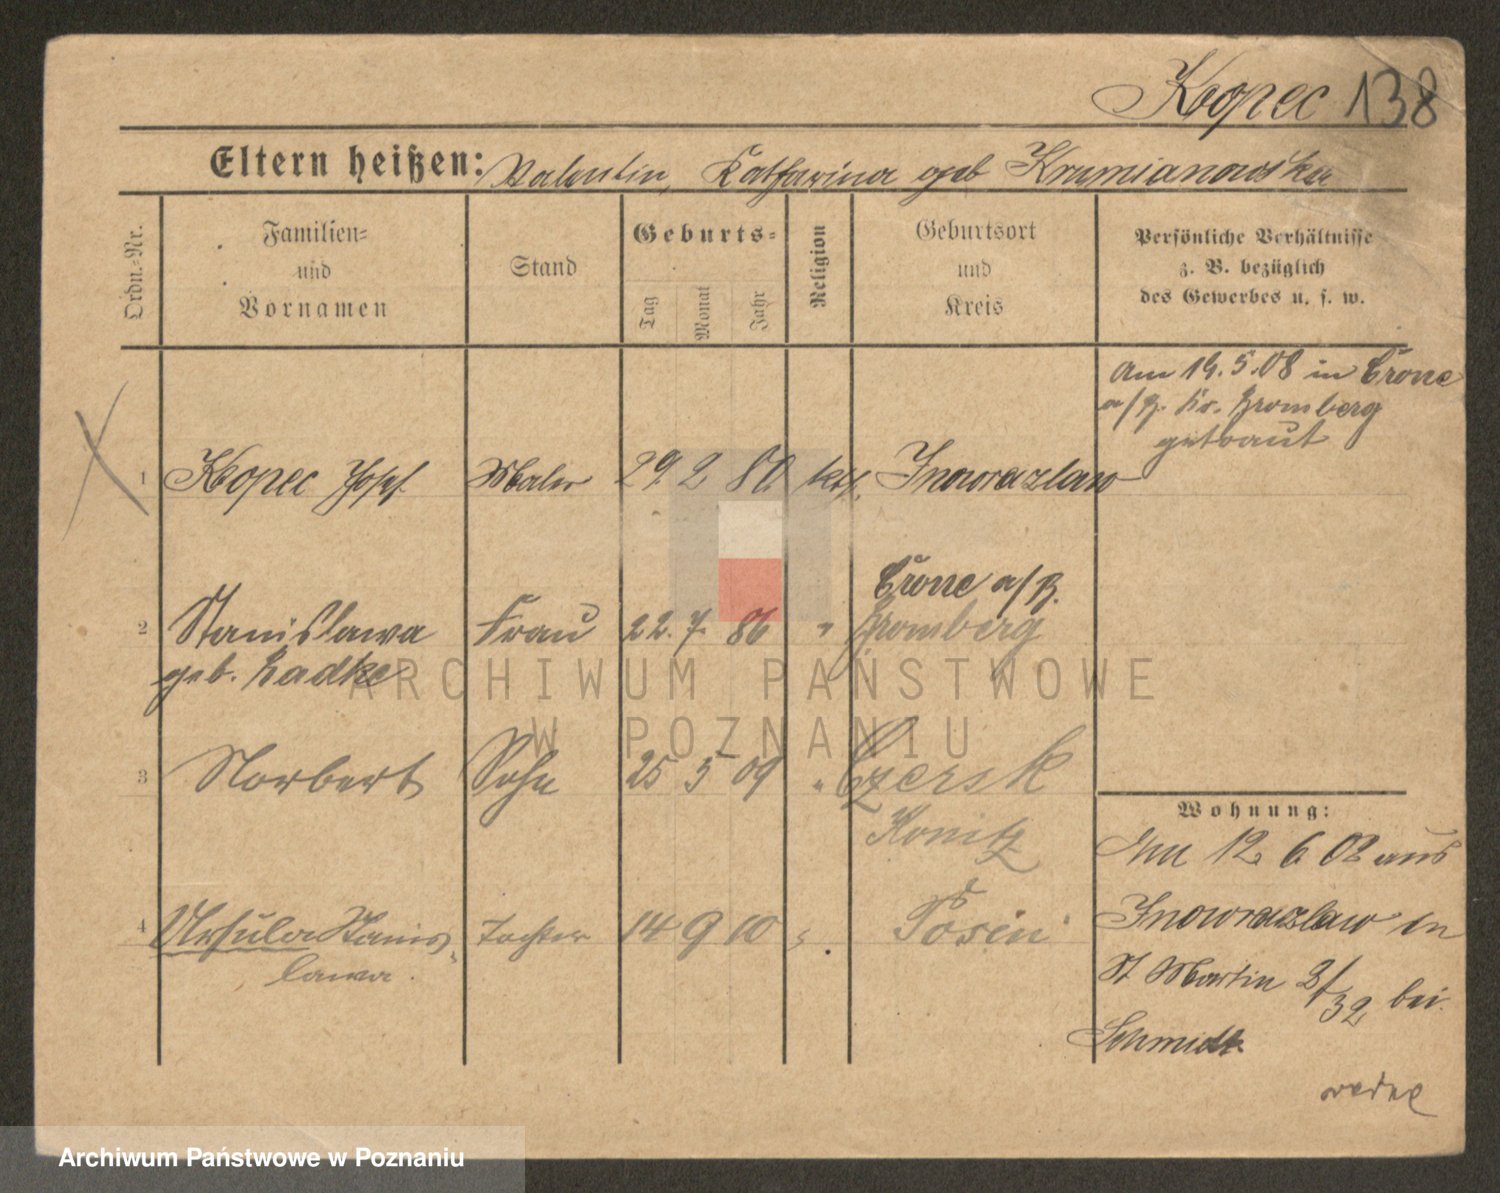 Kopec 138
Eltern heißen: Valentin, Katharina geb Krumianowska
Ordn.-Nr.
Familien-
und
Vornamen
Stand
Geburts-
Tag
Monat
Jahr
Religion
Geburtsort
und
Kreis
Persönliche Verhältnisse
z. B. bezüglich
des Gewerbes u. s. w.
am 19.5.08 in Crone
a/B. Kr. Bromberg
getraut
1 Kopec Josef Maler 29 2 80 kth. Inowrazlaw
Crone a/B.
2 Stanislawa Frau 22. 7. 86 " Bromberg
geb. Radke
ARCHIWUM PAŃSTWOWE
W POZNANIU
3 Norbert Sohn 25 5 09 " Czersk
Konitz
4 Ursula Stanis- Tochter 14 9 10 " Posen
lawa.
Wohnung:
Im 12 6 02 aus
Inowrazlaw in
St Martin 3/32 bei
Schmidt
Archiwum Państwowe w Poznaniu